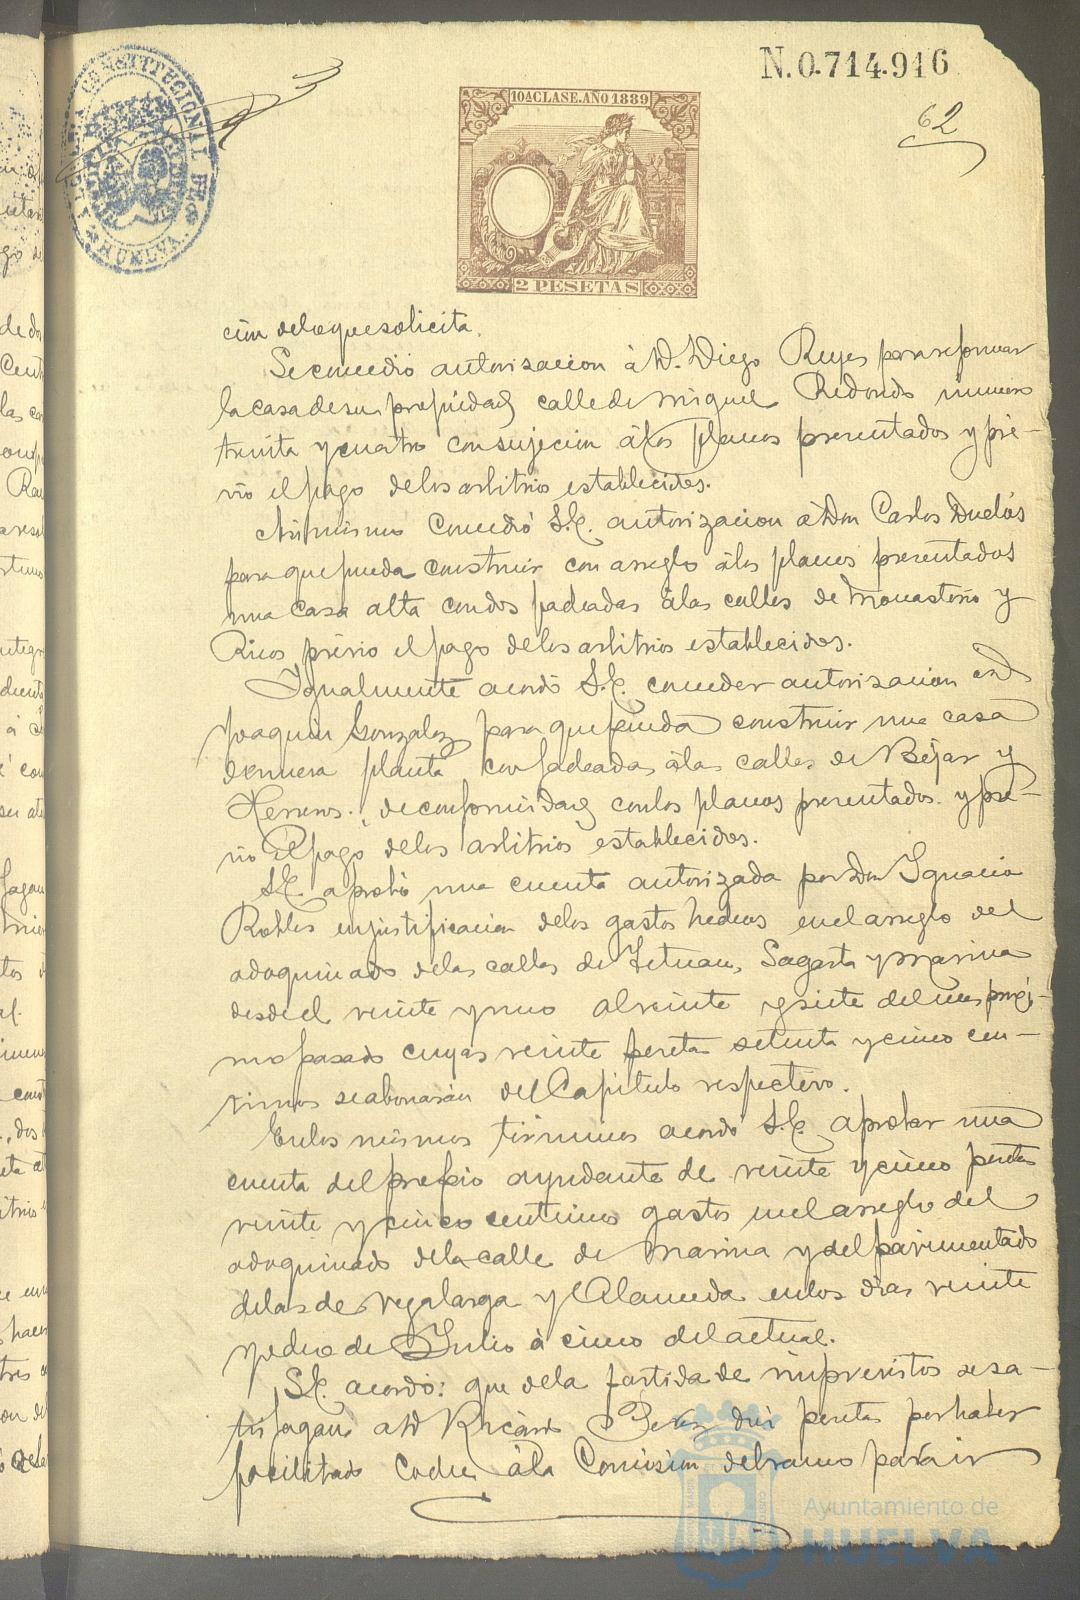 N.0.714.916
62
10ª CLASE. AÑO 1889
2 PESETAS
ALCALDIA CONSTITUCIONAL DE
HUELVA
cion de lo que solicita.
Se concedió autorizacion á D. Diego Reyes para reformar
la casa de su propiedad calle de Miguel Redondo número
treinta y cuatro con sujecion á los planos presentados y pré-
vio el pago de los arbitrios establecidos.
Asimismo concedió S.E. autorizacion á Don Carlos
para que pueda construir con arreglo á los planos presentados
una casa alta con dos fachadas á las calles de Monasterio y
Ricos prévio el pago de los arbitrios establecidos.
Igualmente acordó S.E. conceder autorizacion á D.
Joaquin Gonzalez para que pueda construir una casa
de nueva planta con fachadas á las calles de Bejar y
Herreros, de conformidad con los planos presentados y pré-
vio el pago de los arbitrios establecidos.
S.E. aprobó una cuenta autorizada por Don Ignacio
Robles en justificacion de los gastos hechos en el arreglo del
adoquinado de las calles de Tetuan, Sagasta y Marina
desde el veinte y uno al veinte y siete del mes próxi-
mo pasado cuyas veinte pesetas setenta y cinco cen-
timos se abonarán del Capitulo respectivo.
En los mismos términos acordó S.E. aprobar una
cuenta del propio ayudante de veinte y cinco pesetas
veinte y cinco centimos gastos en el arreglo del
adoquinado de la calle de Marina y del pavimentado
de las de Vegalarga y Alameda en los dias veinte
y de Julio á cinco del actual.
S.E. acordó: que de la partida de imprevistos se sa-
tisfagan á D. Ricardo Perez diez pesetas por haber
facilitado coche á la Comision del ramo para ir
Ayuntamiento de
HUELVA